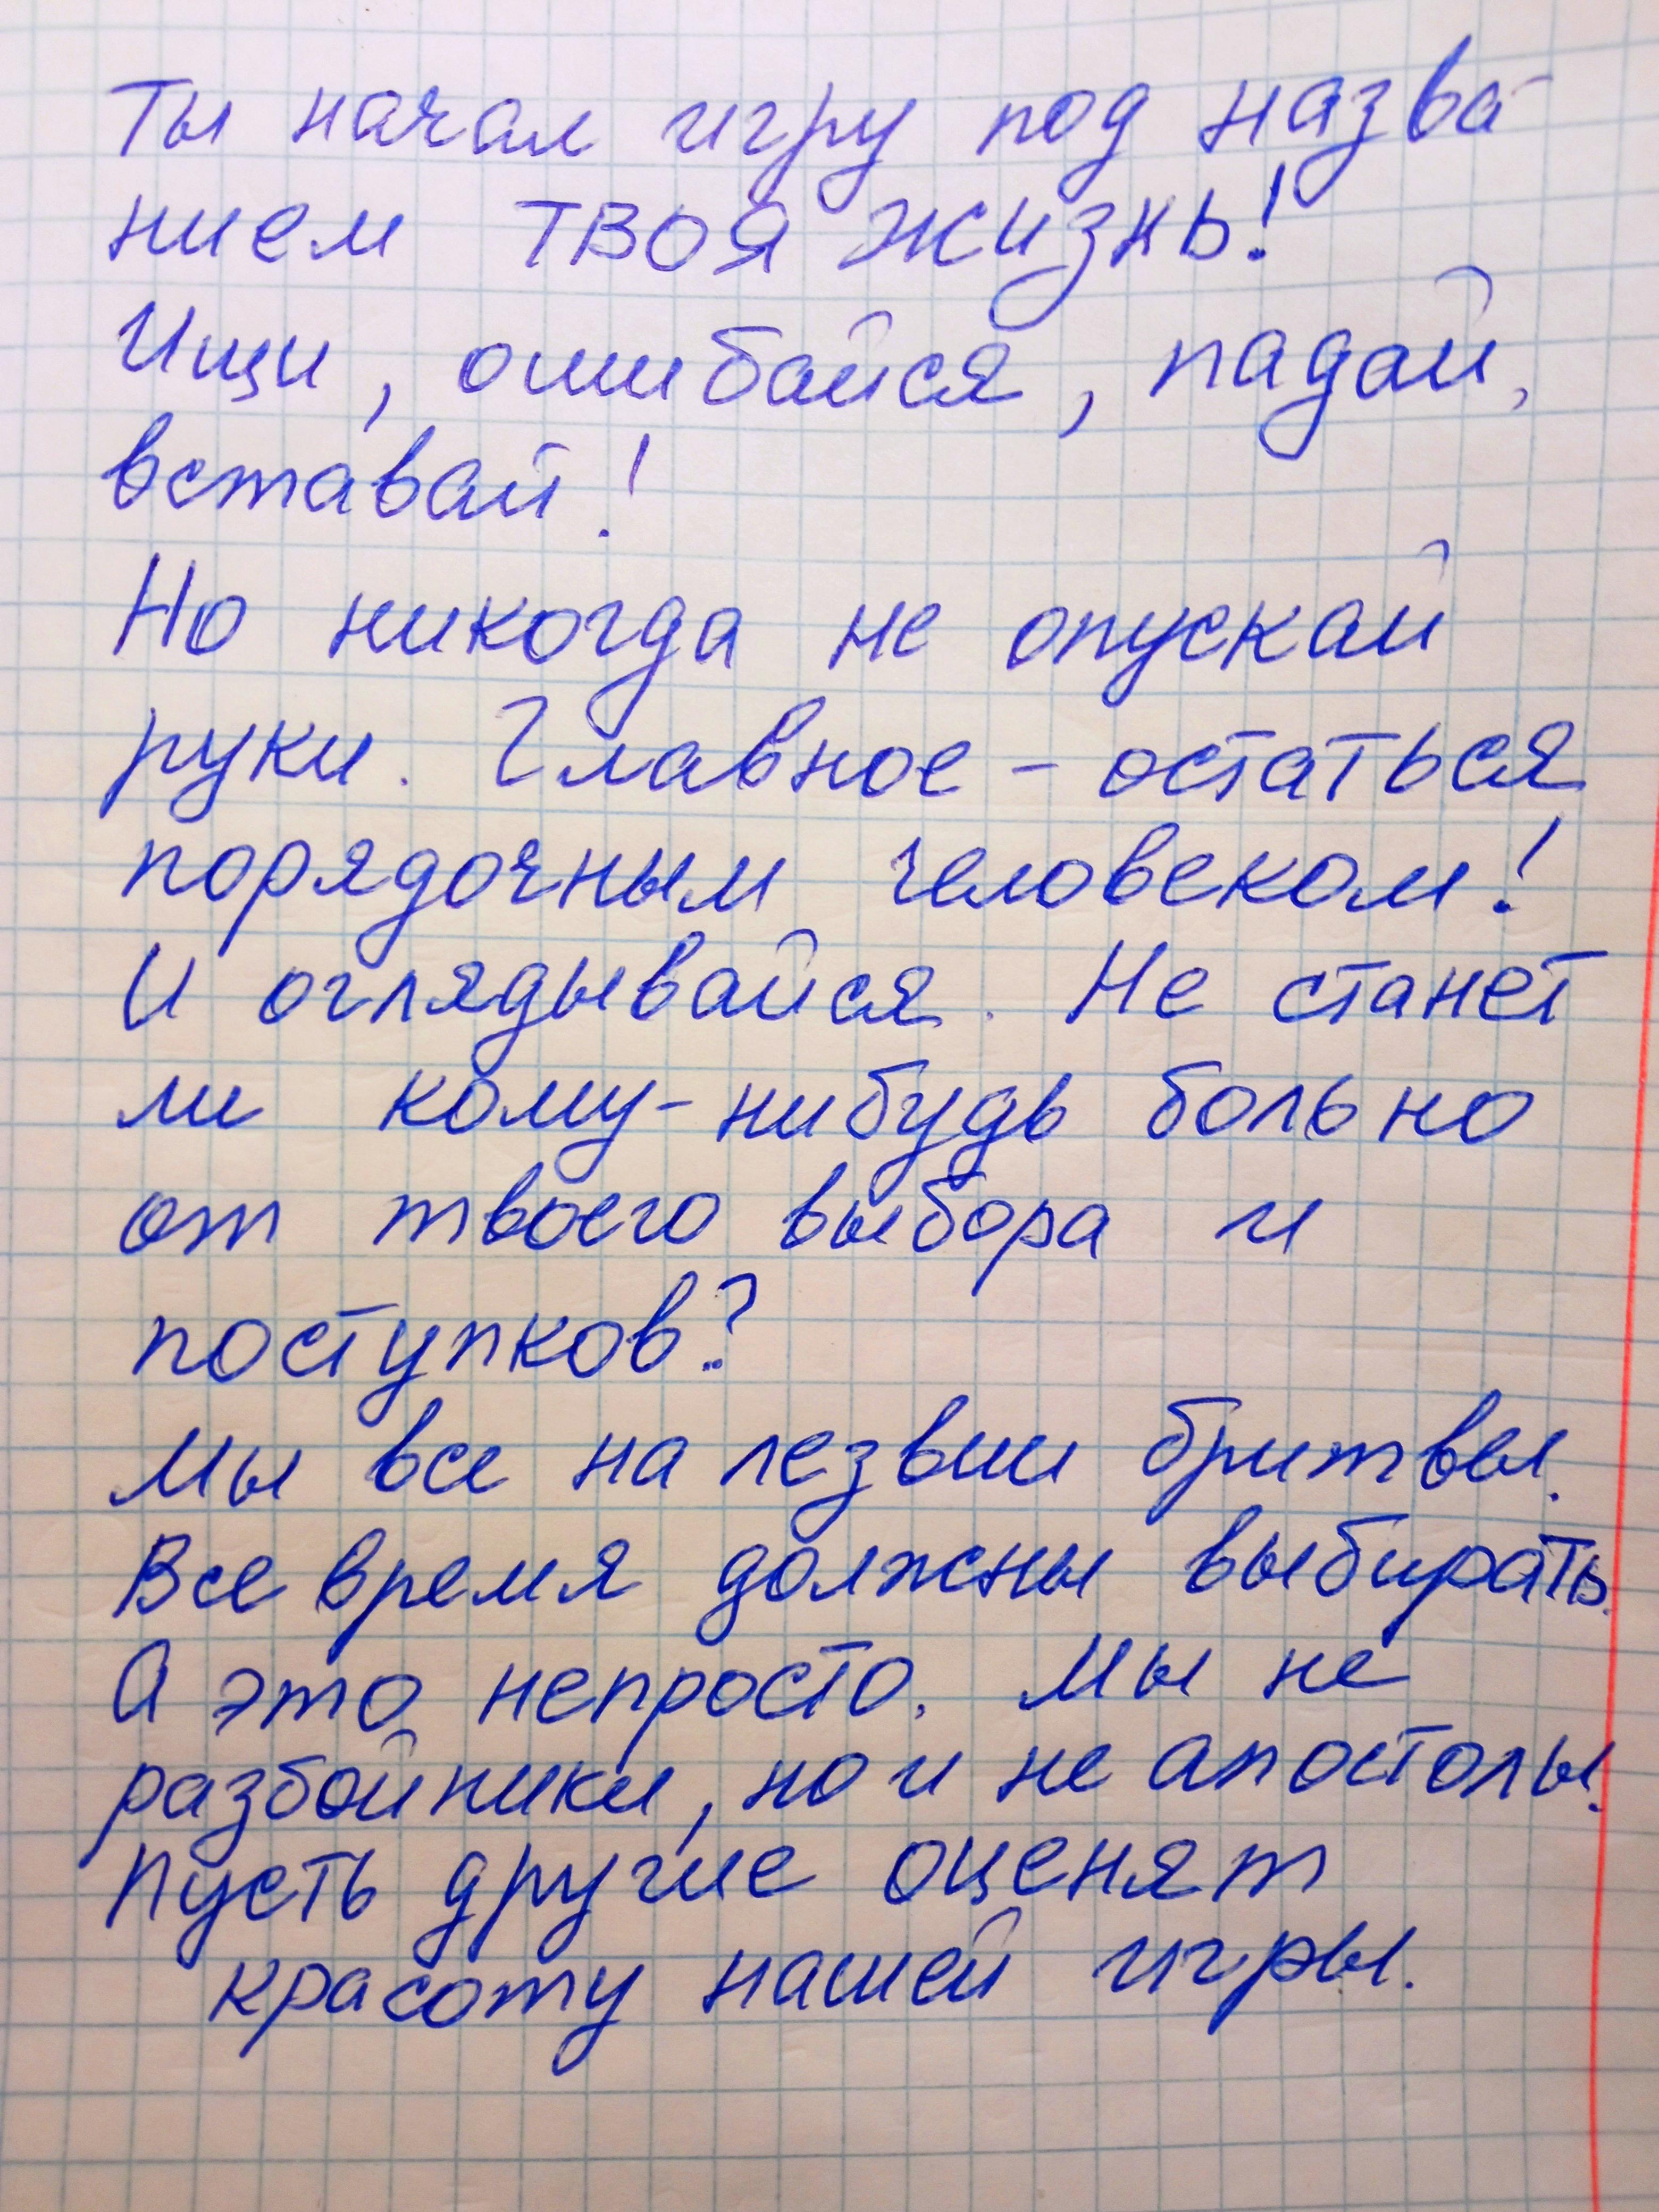 Ты начал игру под назва-
нием ТВОЯ жизнь!
Ищи, ошибайся, падай,
вставай!
Но никогда не опускай
руки. Главное - остаться
порядочным человеком!
И оглядывайся. Не станет
ли кому-нибудь больно
от твоего выбора и
поступков?
Мы все на лезвии бритвы.
Все время должны выбирать.
А это непросто. Мы не
разбойники, но и не апостолы.
Пусть другие оценят
красоту нашей игры.